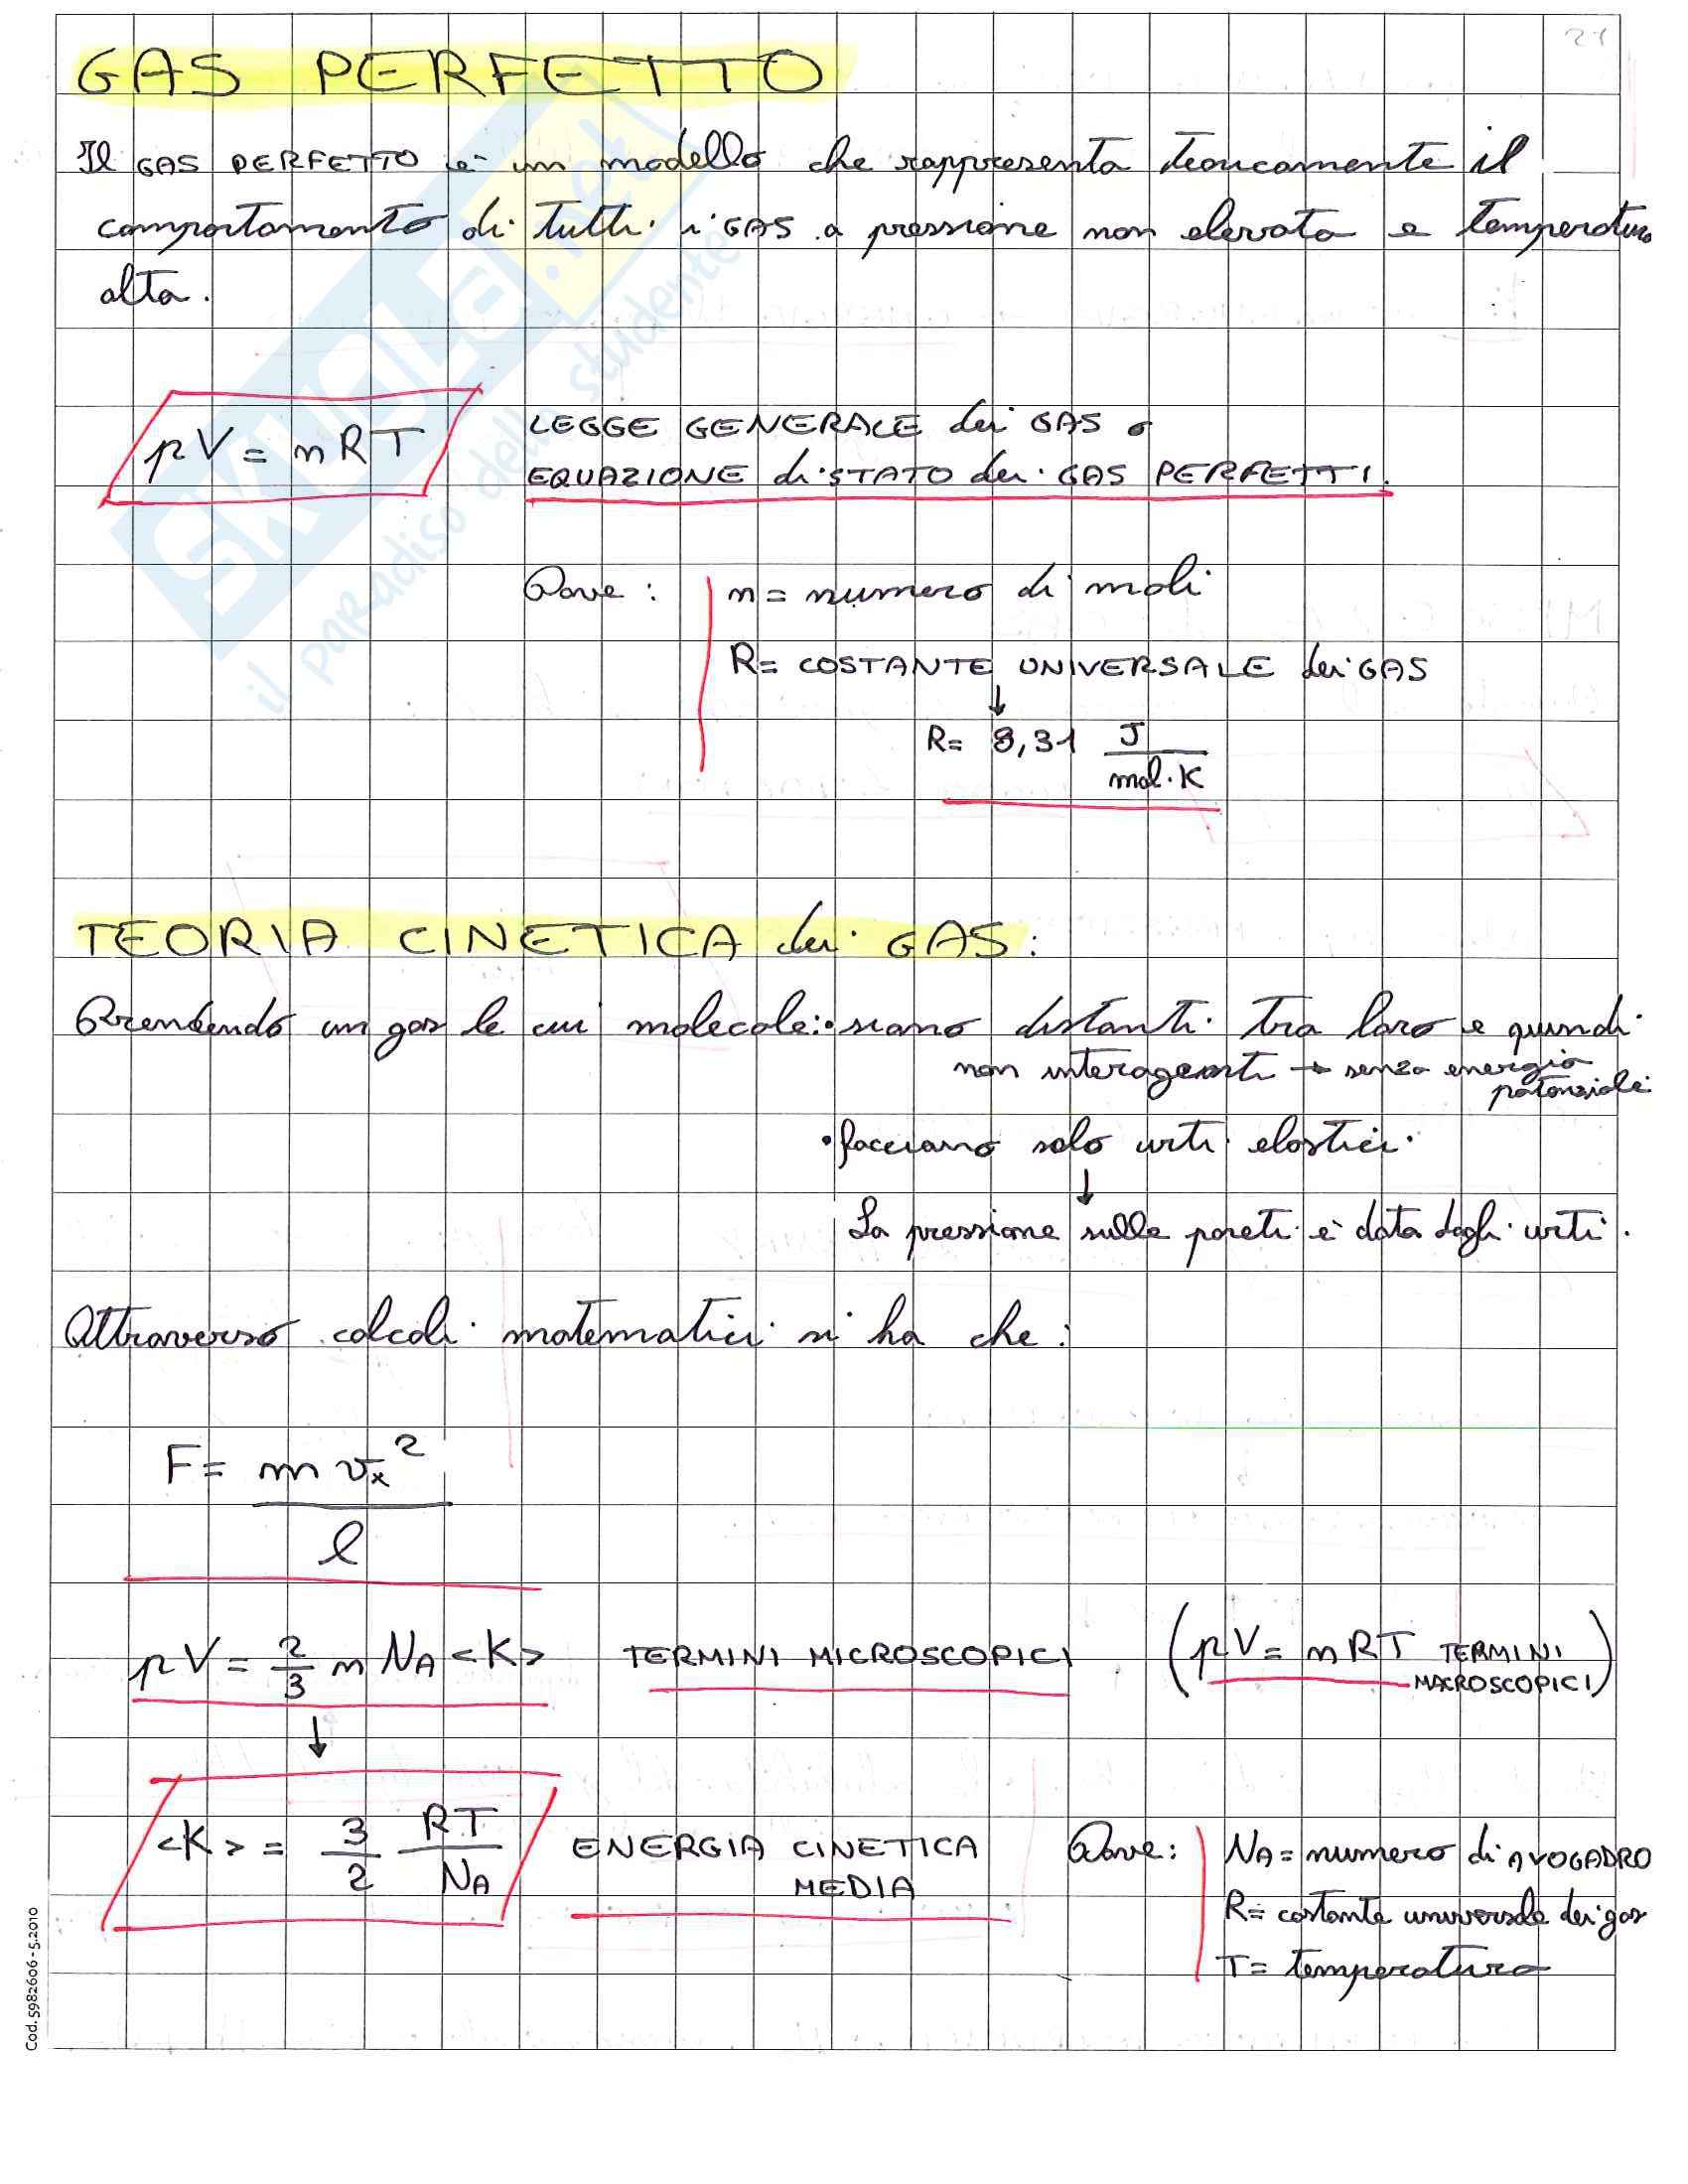 21
GAS PERFETTO
Il GAS PERFETTO è un modello che rappresenta teoricamente il
comportamento di tutti i GAS a pressione non elevata e temperatura
alta.
pV = nRT
LEGGE GENERALE dei GAS o
EQUAZIONE di STATO dei GAS PERFETTI.
Dove: n = numero di moli
R = COSTANTE UNIVERSALE dei GAS
↓
R = 8,31 J/mol·K
TEORIA CINETICA dei GAS:
Prendendo un gas le cui molecole: • siano distanti tra loro e quindi
non interagenti → senza energia
potenziale
• facciano solo urti elastici
↓
La pressione sulle pareti è data dagli urti.
Attraverso calcoli matematici si ha che:
F = m vₓ² / l
pV = 2/3 n NA <K> TERMINI MICROSCOPICI (pV = nRT TERMINI
MACROSCOPICI)
↓
<K> = 3/2 RT/NA
ENERGIA CINETICA
MEDIA
Dove: NA = numero di AVOGADRO
R = costante universale dei gas
T = temperatura
SKUOLA.net
il paradiso dello studente
Cod. 5982606 - 5.2010